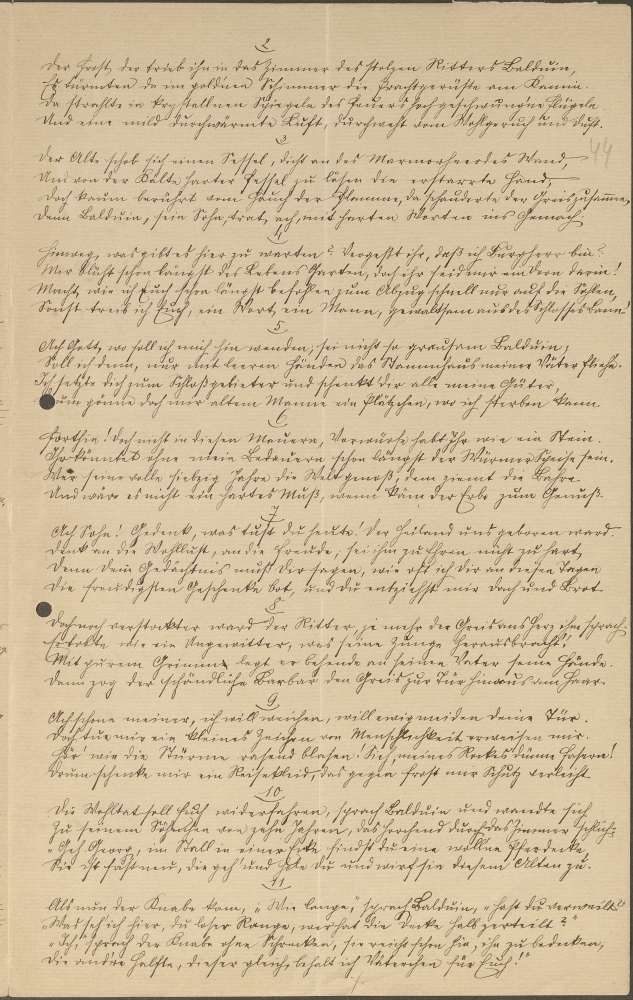 2
Der Frost, der trieb ihn in das Zimmer des stolzen Ritters Balduin,
Es türmten da im goldnen Schimmer die Prachtgerüste am Kamin.
Da strahlte in krystallnen Spiegeln des Feuers hochgeschwung'ne Flügeln
Und eine mild durchwärmte Luft, durchweht vom Wohlgeruch und Duft.
3
44
Der Alte schob sich einen Sessel, dicht an des Marmorherdes Wand,
Um von der Kälte harter Fessel zu lösen die erstarrte Hand,
Doch kaum berührt vom Hauch der Flamme, da schauderte der Greis zusammen,
Denn Balduin, sein Sohn, trat, ach, mit harten Worten ins Gemach.
4
Hinweg, was gibt es hier zu warten? Vergeßt ihr, daß ich Burgherr bin?
Mir blüht schon längst des Lebens Garten, doch ihr seid nur ein Dorn darin!
Macht, wie ich Euch schon längst befohlen zum Abzug schnell nur auf die Sohlen,
Sonst treib ich Euch, ein Wort, ein Mann, gewaltsam aus des Schlosses Bann!
5
Ach Gott, wo soll ich mich hin wenden, sei nicht so grausam Balduin,
Soll ich denn, nur mit leeren Händen das Stammhaus meiner Väter fliehn.
Ich setzte dich zum Schloßgebieter und schenkt dir alle meine Güter,
Drum gönne doch mir altem Manne ein Plätzchen, wo ich sterben kann.
6
Forthin! Doch nicht in diesen Mauern, Vorwürfe habt Ihr wie ein Stein.
Ihr könntet ohne mein Bedauern schon längst der Würmer Speise sein.
Wer seine volle siebzig Jahre die Welt genoß, dem ziemt die Bahre.
Und wär es nicht ein hartes Muß, wann käm der Erbe zum Genuß.
7
Ach Sohn! Gedenk, was tust du heute! Der Heiland uns geboren ward.
Denk an die Wohllust, an die Freude, sei ihm zu Ehren nicht zu hart,
Denn dein Gedächtnis muß dir sagen, wie oft ich dir an diesen Tagen
Die freudigsten Geschenke bot, und du entziehst mir Dach und Brot.
8
Doch noch verstockter ward der Ritter, je mehr der Greis ans Herz ihm sprach.
Es tobte wie ein Ungewitter, was seine Zunge herausbracht,
Mit gurem Grimme legt er behende an seinen Vater seine Hände.
Dann zog der schändliche Barbar den Greis zur Tür hinaus am Haar.
9.
Ach schone meiner, ich will weichen, will ewig meiden deine Tür.
Doch tue mir ein kleines Zeichen von Menschlichkeit erweisen mir.
Hör' wie die Stürme rasend blasen! Sieh, meines Rockes dünne Fasern!
Drum schenke mir ein Reisekleid, das gegen Frost mir Schutz verleiht.
10
Die Wohltat soll Euch widerfahren, sprach Balduin und wandte sich
Zu seinem Söhnchen von zehn Jahren, das horchend durch das Zimmer schlich:
"Geh Georg, im Stall in einer Ecke findst du eine wollne Pferdecke,
Sie ist fast neu, die geh' und hole du und wirf sie diesem Alten zu.
11
Als nun der Knabe kam, "Wie lange," sprach Balduin, "hast du verweilt"
"Was seh' ich hier, du loser Range, wer hat die Decke halb zerteilt?"
"Ich," sprach der Knabe ohne Schrecken, "sie reicht schon hin, ihn zu bedecken,
Die andre Hälfte, dieser gleich, behalt ich Väterchen für Euch!"